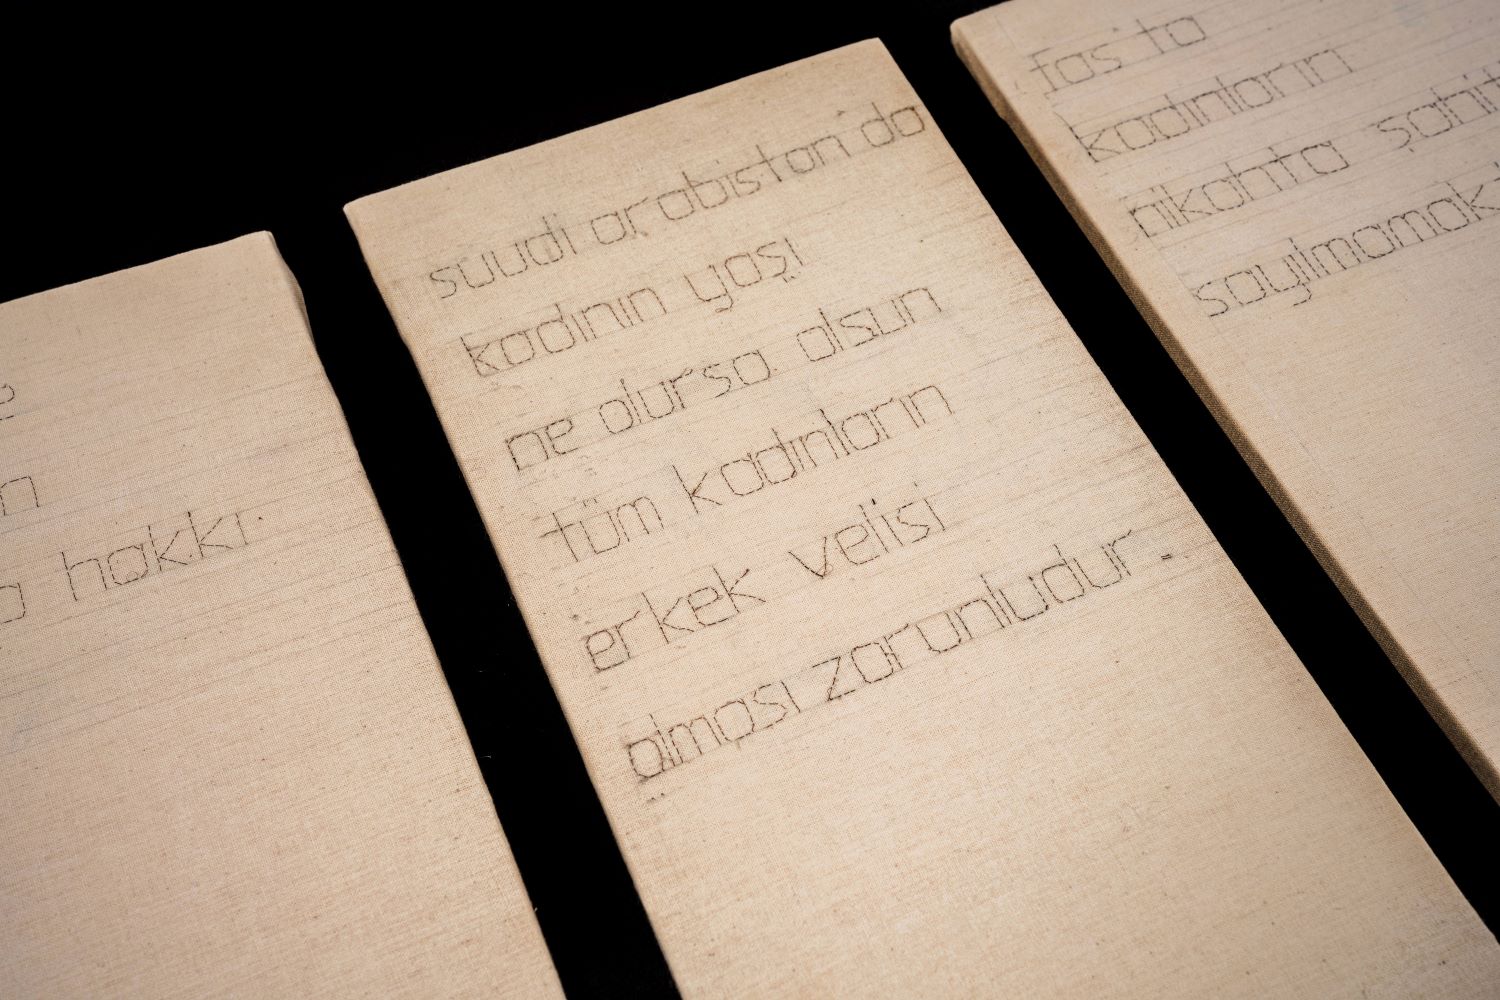 hakkı.
suudi arabistan'da
kadının yaşı
ne olursa olsun
tüm kadınların
erkek velisi
olması zorunludur.
fas'ta
kadınların
nikahta